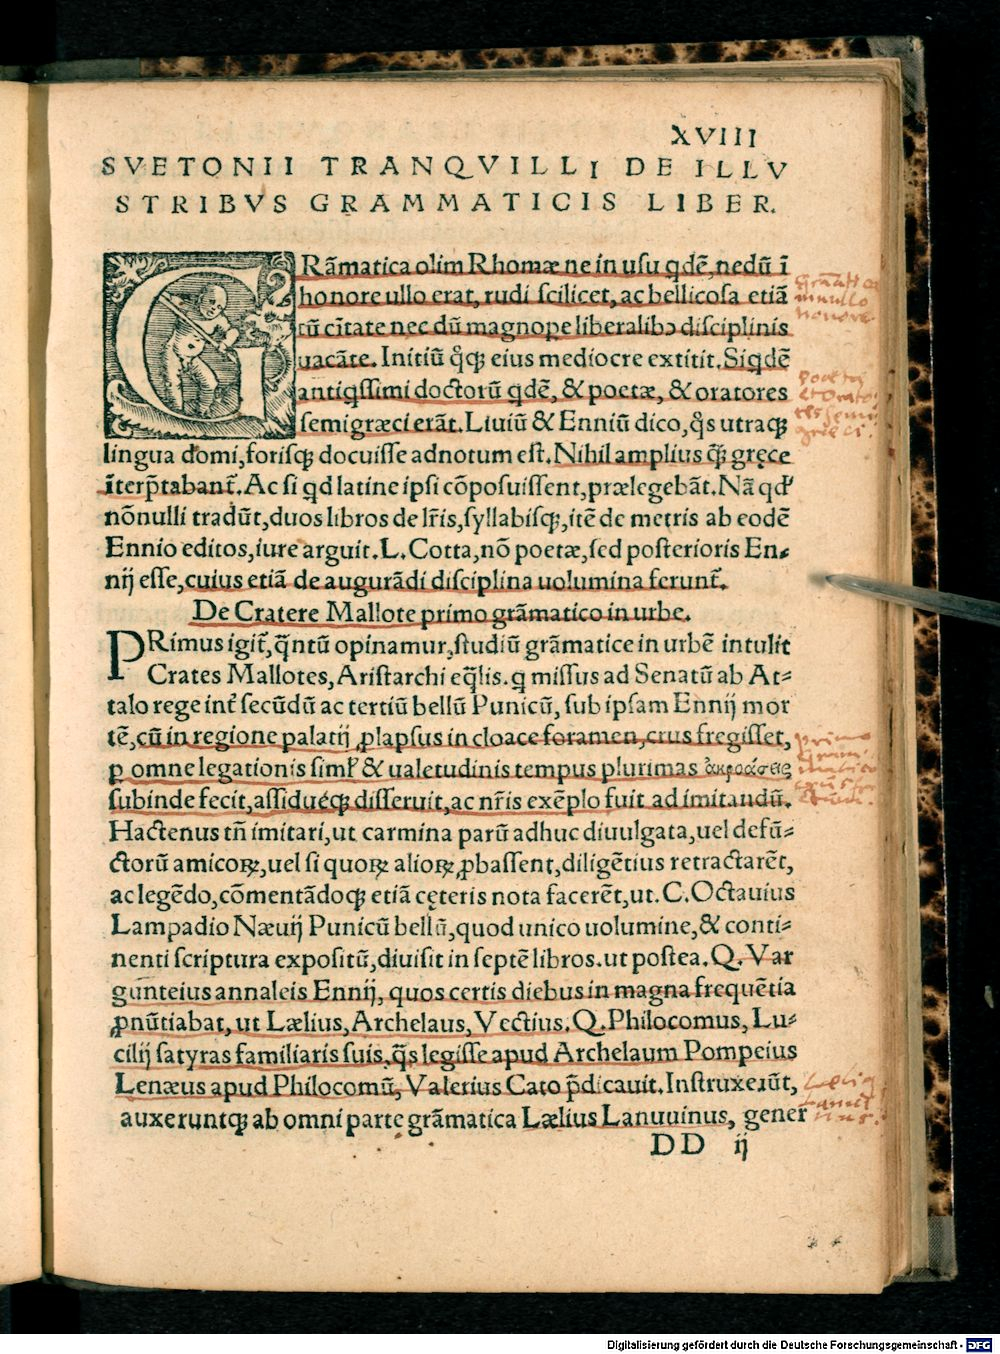 XVIII
SVETONII TRANQVILLI DE ILLV
STRIBVS GRAMMATICIS LIBER.
GRāmatica olim Rhomæ ne in usu qdē, nedū ī
honore ullo erat, rudi scilicet, ac bellicosa etiā
tū cītate nec dū magnope liberalibꝰ disciplinis
uacāte. Initiū q̊qꝫ eius mediocre extitit. Siqdē
antiqssimi doctorū qdē, & poetæ, & oratores
semigræci erāt. Liuiū & Enniū dico, q̊s utraqꝫ
lingua domi, forisqꝫ docuisse adnotum est. Nihil amplius q̄ꝫ gręce
īterp̄tabant᷑. Ac si qd latine ipsi cōposuissent, prælegebāt. Nā qd'
nōnulli tradūt, duos libros de lr̄is, syllabisqꝫ, itē de metris ab eodē
Ennio editos, iure arguit. L. Cotta, nō poetæ, sed posterioris En-
nij esse, cuius etiā de augurādi disciplina uolumina ferunt᷑.
De Cratere Mallote primo grāmatico in urbe.
PRimus igit᷑, q̄ntū opinamur, studiū grāmatice in urbē intulit
Crates Mallotes, Aristarchi eq̄lis. q missus ad Senatū ab At-
talo rege int᷑ secūdū ac tertiū bellū Punicū, sub ipsam Ennij mor
tē, cū in regione palatij ꝓlapsus in cloace foramen, crus fregisset,
ꝑ omne legationis siml' & ualetudinis tempus plurimas ἀκροάσεις
subinde fecit, assidueqꝫ disseruit, ac nr̄is exēplo fuit ad imitandū.
Hactenus tn̄ imitari, ut carmina parū adhuc diuulgata, uel defū-
ctorū amicoꝝ, uel si quoꝝ alioꝝ ꝓbassent, diligētius retractarēt,
ac legēdo, cōmentādoqꝫ etiā cęteris nota facerēt, ut. C. Octauius
Lampadio Næuij Punicū bellū, quod unico uolumine, & conti-
nenti scriptura expositū, diuisit in septē libros. ut postea. Q. Var
gunteius annaleis Ennij, quos certis diebus in magna frequētia
ꝓnūtiabat, ut Lælius, Archelaus, Vectius. Q. Philocomus, Lu-
cilij satyras familiaris suis, q̊s legisse apud Archelaum Pompeius
Lenæus apud Philocomū, Valerius Cato p̄dicauit. Instruxerūt,
auxeruntqꝫ ab omni parte grāmatica Lælius Lanuuinus, gener
DD ij
in nullo
honore.
Poetę
et orato
res semi
gręci.
primo
Digitalisierung gefördert durch die Deutsche Forschungsgemeinschaft - DFG